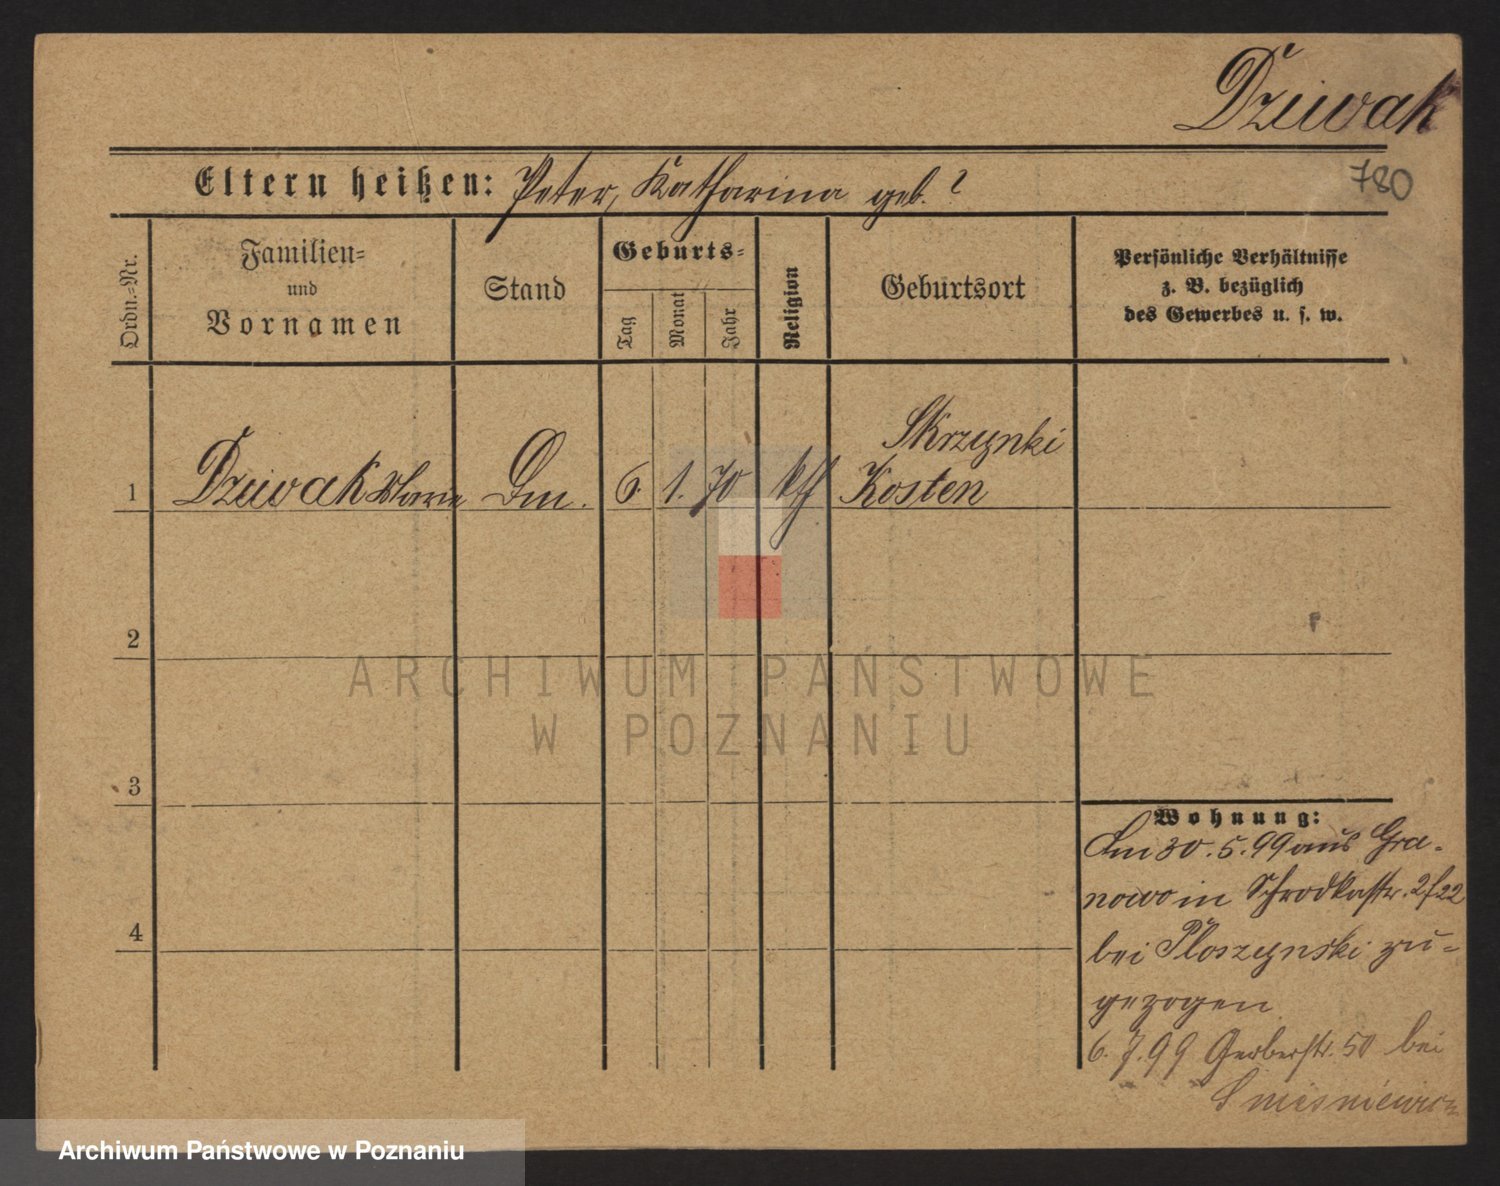 Dziwak
780
Eltern heißen: Peter, Katharina geb. ?
Ordn.-Nr.
Familien-
und
Vornamen
Stand
Geburts-
Tag
Monat
Jahr
Religion
Geburtsort
Persönliche Verhältnisse
z. B. bezüglich
des Gewerbes u. s. w.
Skrzynki
1 Dziwak Marie Dm. 6. 1. 70 kth Kosten
2
ARCHIWUM PAŃSTWOWE
W POZNANIU
3
Wohnung:
Am 30. 5. 99 aus Gra-
nowo in Schrodkastr. 2/22
4
bei Ploszynski zu-
gezogen
6. 7. 99 Gerberstr. 50 bei
Archiwum Państwowe w Poznaniu